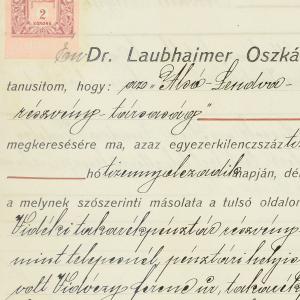 2
KORONA
Én Dr. Laubhaimer Oszká
tanusitom, hogy: az "Alsó-Lendva-
részvény-társaság"
megkeresésére ma, azaz egyezerkilenczszáz ti
hó tizennyolczadik napján, dél
a melynek szószerinti másolata a tulsó oldalon
Vidéki takarékpénztár részvény
mint telepesnél, pénztári helyis
volt Vidóczy Ferencz úr, takarék